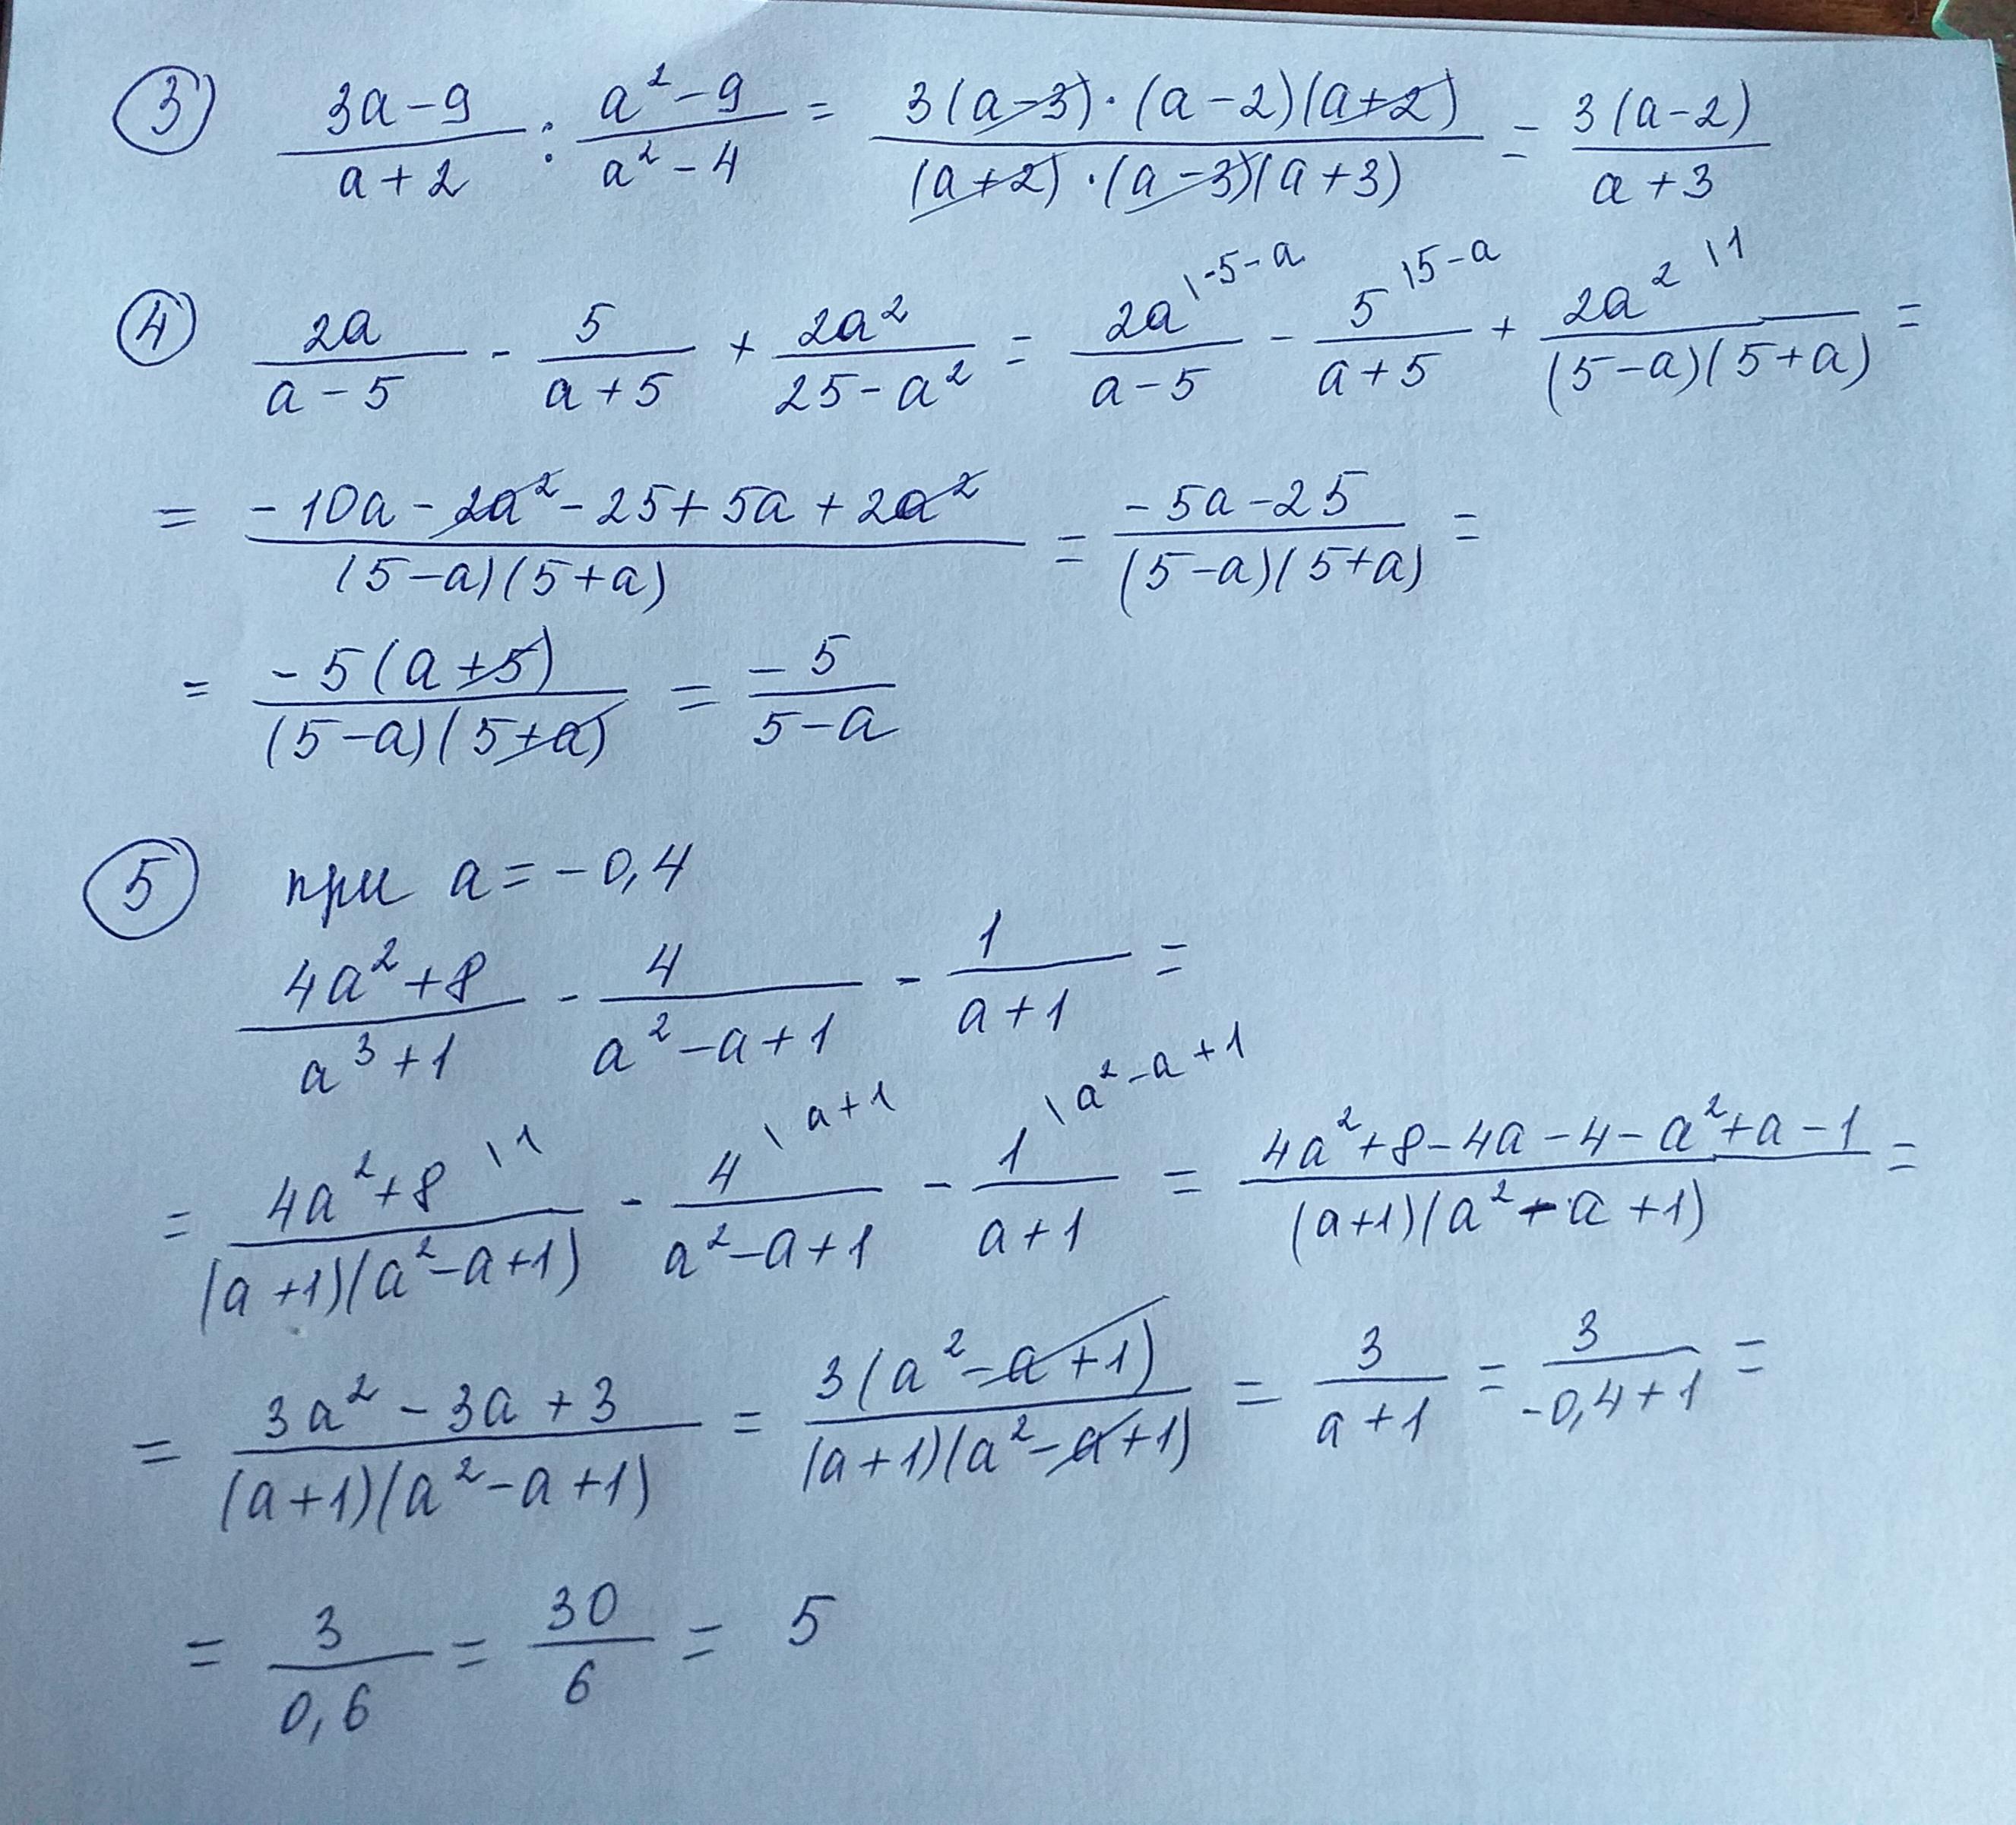 ③ (3a-9)/(a+2) : (a²-9)/(a²-4) = (3(a-3)·(a-2)(a+2))/((a+2)·(a-3)(a+3)) = (3(a-2))/(a+3)
④ 2a/(a-5) - 5/(a+5) + 2a²/(25-a²) = 2a\-5-a/(a-5) - 5\5-a/(a+5) + 2a²\1/((5-a)(5+a)) =
= (-10a-2a²-25+5a+2a²)/((5-a)(5+a)) = (-5a-25)/((5-a)(5+a)) =
= (-5(a+5))/((5-a)(5+a)) = -5/(5-a)
⑤ при a=-0,4
(4a²+8)/(a³+1) - 4/(a²-a+1) - 1/(a+1) =
= (4a²+8)\1/((a+1)(a²-a+1)) - 4\a+1/(a²-a+1) - 1\a²-a+1/(a+1) = (4a²+8-4a-4-a²+a-1)/((a+1)(a²-a+1)) =
= (3a²-3a+3)/((a+1)(a²-a+1)) = (3(a²-a+1))/((a+1)(a²-a+1)) = 3/(a+1) = 3/(-0,4+1) =
= 3/0,6 = 30/6 = 5